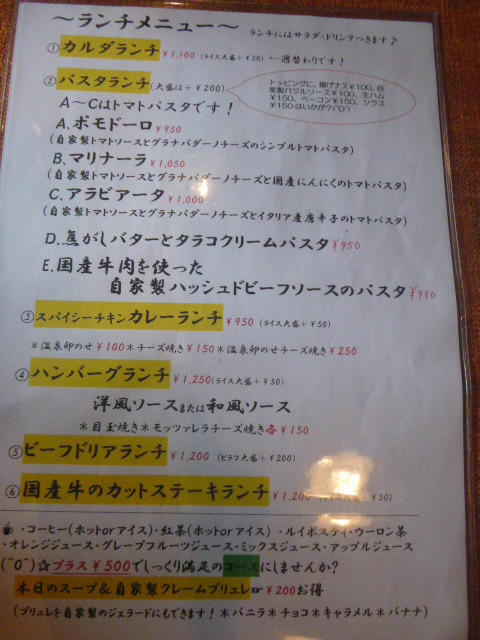 ～ランチメニュー～ ランチにはサラダ・ドリンクつきます♪
①カルダランチ ¥1,100 (ライス大盛+¥50) ←週替わりです！
②パスタランチ(大盛は+¥200)
トッピングに、揚げナス¥100、自
家製バジルソース¥100、生ハム
¥150、ベーコン¥150、シラス
¥150はいかが？(^O^)
A～Cはトマトパスタです！
A.ポモドーロ ¥950
(自家製トマトソースとグラナパダーノチーズのシンプルトマトパスタ)
B.マリナーラ ¥1,050
(自家製トマトソースとグラナパダーノチーズと国産にんにくのトマトパスタ)
C.アラビアータ ¥1,000
(自家製トマトソースとグラナパダーノチーズとイタリア産唐辛子のトマトパスタ)
D.焦がしバターとタラコクリームパスタ ¥950
E.国産牛肉を使った
自家製ハッシュドビーフソースのパスタ ¥950
③スパイシーチキンカレーランチ ¥950 (ライス大盛+¥50)
＊温泉卵のせ¥100＊チーズ焼き¥150＊温泉卵のせチーズ焼き¥250
④ハンバーグランチ ¥1,250(ライス大盛+¥50)
洋風ソースまたは和風ソース
＊目玉焼き＊モッツァレラチーズ焼き各¥150
⑤ビーフドリアランチ ¥1,200 (ピラフ大盛+¥200)
⑥国産牛のカットステーキランチ ¥1,200 +¥50)
・コーヒー(ホットorアイス)・紅茶(ホットorアイス)・ルイボスティ・ウーロン茶
・オレンジジュース・グレープフルーツジュース・ミックスジュース・アップルジュース
(^O^)☆プラス¥500でしっくり満足のコースにしませんか？
本日のスープ＆自家製クレームブリュレ☞¥200お得
(ブリュレを自家製のジェラードにもできます！＊バニラ＊チョコ＊キャラメル＊バナナ)